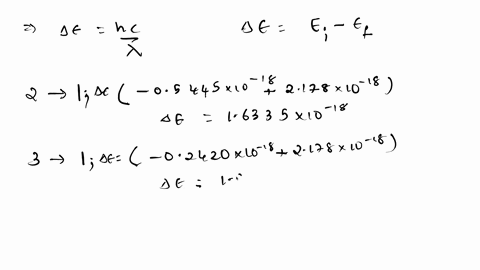 ⇒ ΔE = hc/λ ΔE = Ei - Ef
2 → 1; ΔE (-0.5445×10^-18 + 2.178×10^-18)
ΔE = 1.6335×10^-18
3 → 1; ΔE = (-0.2420×10^-18 + 2.178×10^-18)
ΔE = 1.